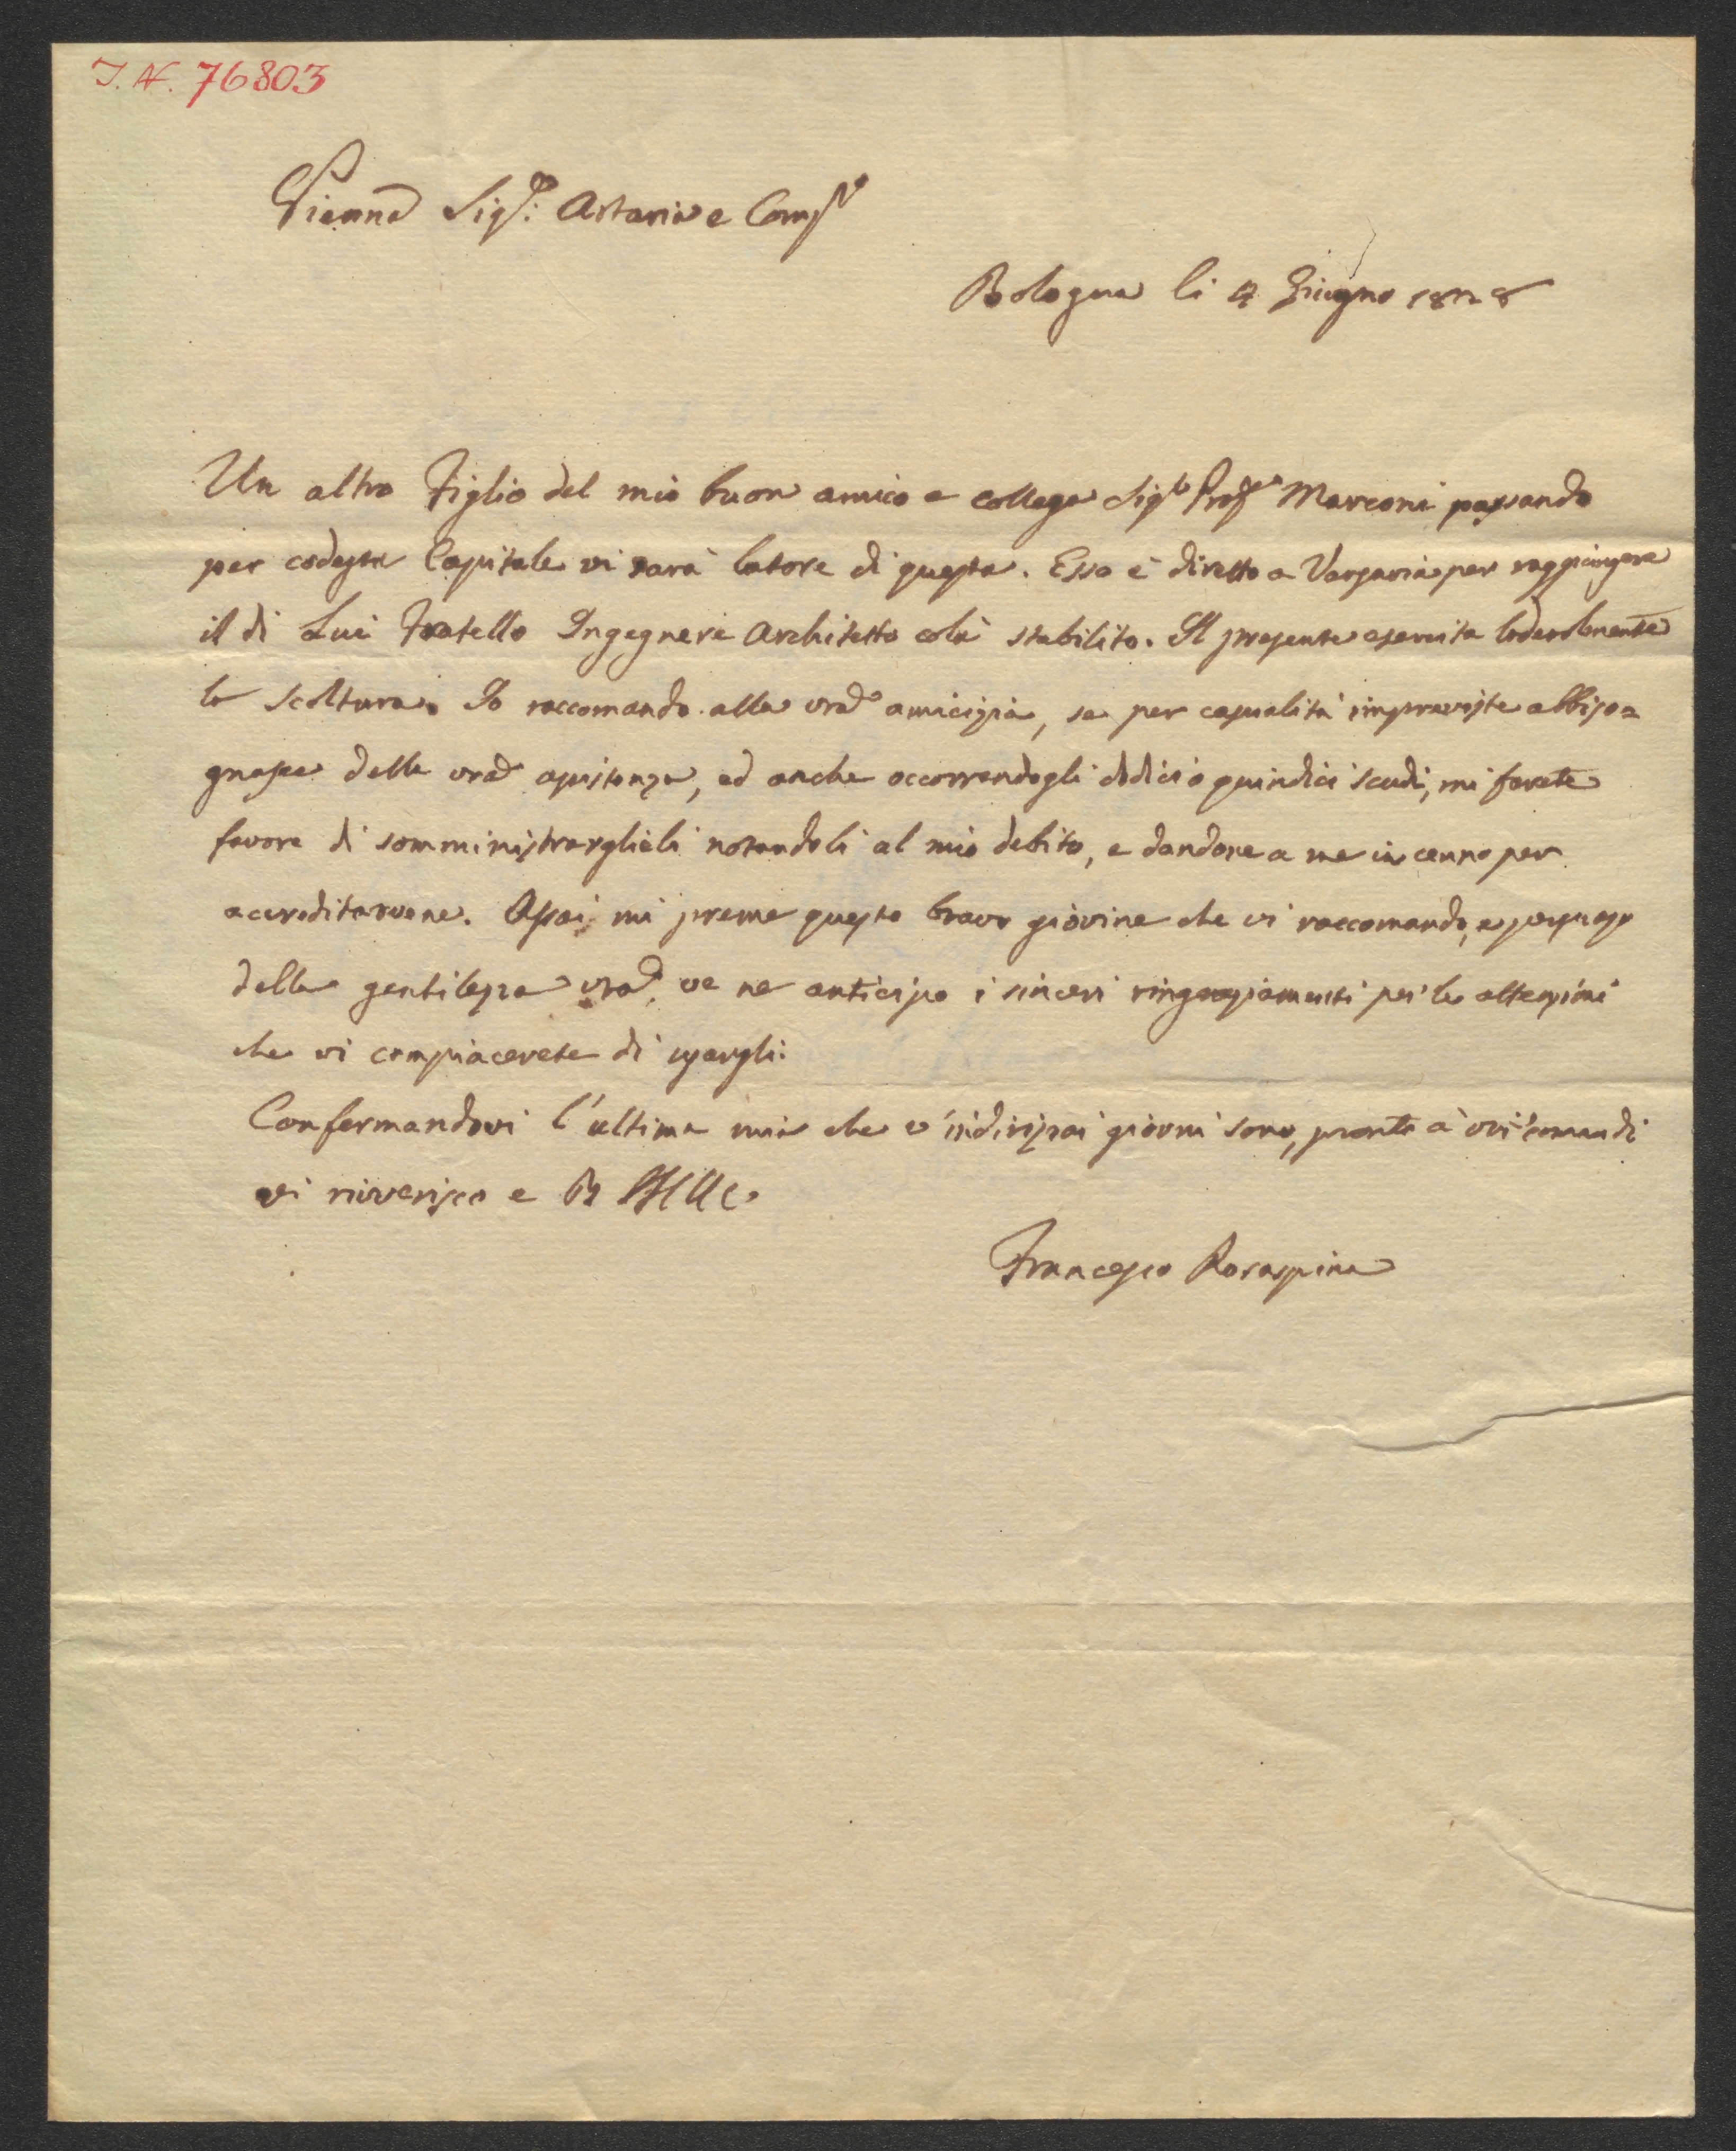 I. N. 76803
Vienna Sig.ri Artaria e Comp.i
Bologna li 4 Giugno 1828
Un altro Figlio del mio buon amico e collega Sig.r Prof.e Marconi passando
per codesta Capitale vi sarà latore di questa. Esso è diretto a Varsavia per raggiungere
il di Lui Fratello Ingegnere Architetto colà stabilito. Il presente esercita lodevolmente
la scoltura. Lo raccomando alla vra amicizia, se per casualità impreviste abbiso=
gnasse della vra assistenza, ed anche occorrendogli dodici o quindici scudi, mi farete
favore di somministrarglieli notandoli al mio debito, e dandone a me un cenno per
accreditarvene. Assai mi preme questo bravo giovine che vi raccomando, e persuaso
della gentilezza vra, ve ne anticipo i sinceri ringraziamenti per le attenzioni
che vi compiacerete di usargli.
Confermandovi l'ultima mia che v'indirizzai giorni sono, pronto a' vri comandi
vi riverisco e B
Francesco Rosaspina